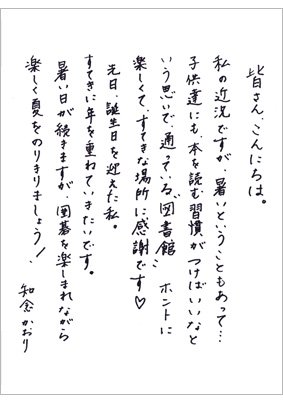 皆さん、こんにちは。
私の近況ですが、暑いということもあって…
子供達にも、本を読む習慣がつけばいいなと
いう思いで、通っている図書館 ホントに
楽しくて、すてきな場所に感謝です♡
先日、誕生日を迎えた私。
すてきに年を重ねていきたいです。
暑い日が続きますが、囲碁を楽しまれながら
楽しく夏をのりきりましょう!
知念かおり